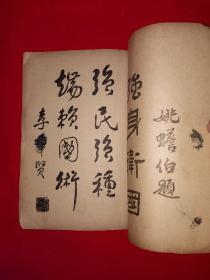 姚蟾伯題
強身衛國
強民強種
端賴國術
李賢